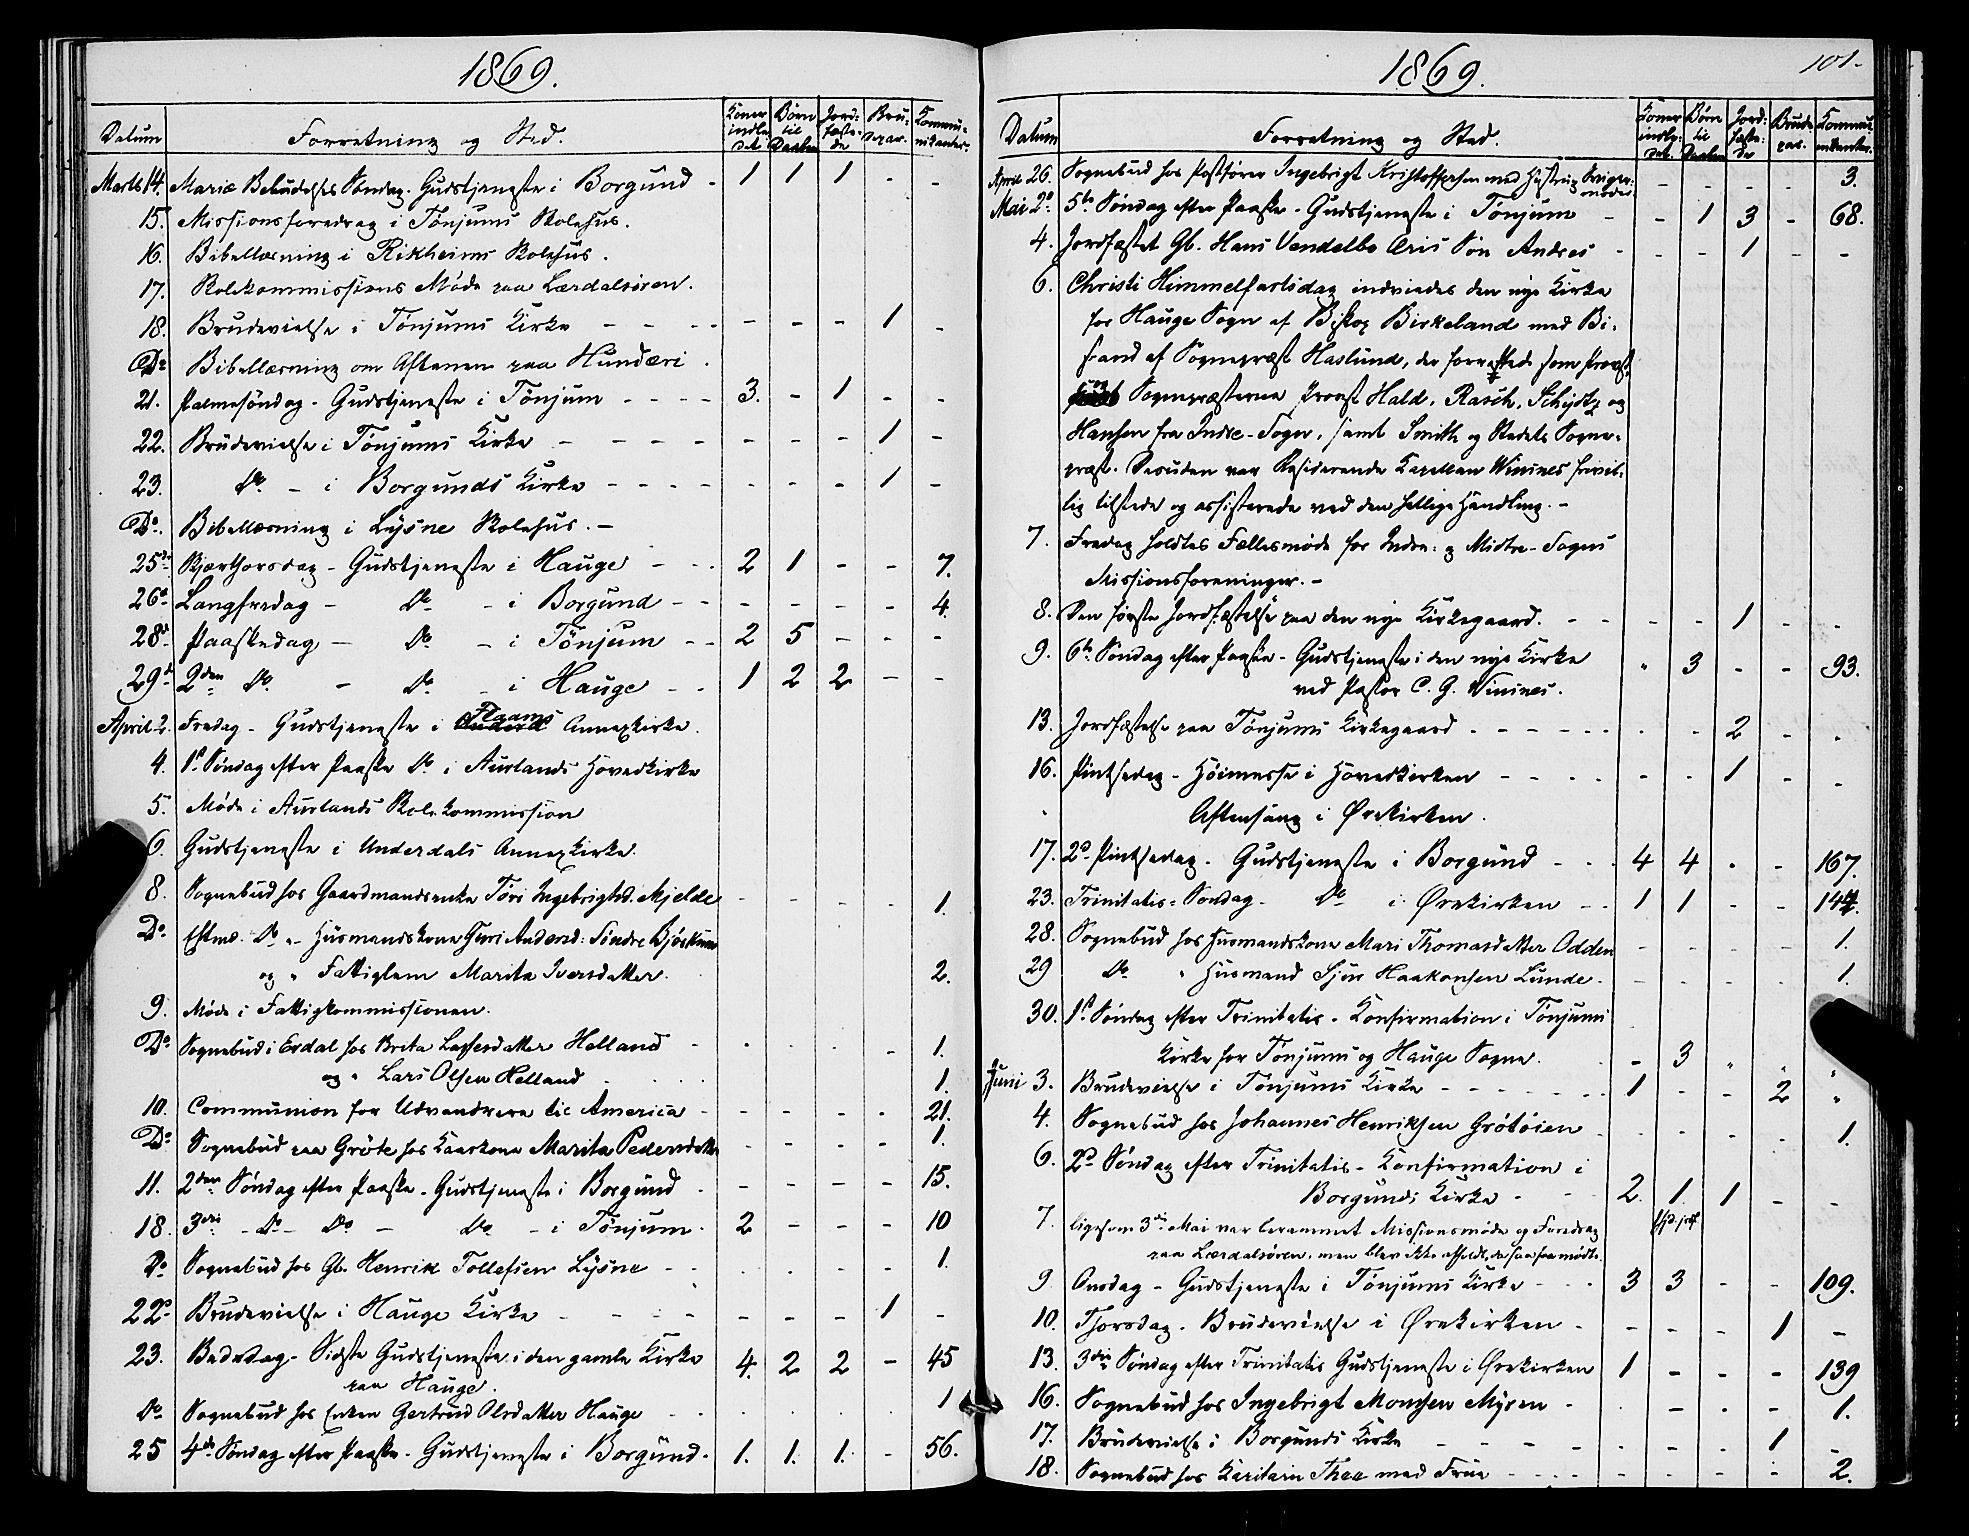 1869.
Datum Forretning og Sted. Koner indle- det Børn til Daaben Jord- fæste- de Bru- depar. Kommu- nikanter.
Marts 14. Mariæ Bebudelses Søndag. Gudstjeneste i Borgund - 1 1 1 - -
15. Missionsforedrag i Tønjums Skolehus.
16. Bibellæsning i Rikheims Skolehus.
17. Skolekommissions Møde paa Lærdalsøren.
18. Brudevielse i Tonjums Kirke - - - - - - - 1 -
Do Bibellæsning om Aftenen paa Hundæri.
21. Palmesöndag - Gudstjeneste i Tönjum - - - - 3. - 1 - -
22. Brudevielse i Tønjums Kirke - - - - - - - 1 -
23. Do. - i Borgunds Kirke - - - - - - - 1 -
Do. Bibellæsning i Lysne Skolehus. -
25de Skjærthorsdag - Gudstjeneste i Hauge - - - 2 1 - - 7.
26d Langfredag - Do - i Borgund - - - - - - 4.
28d Paaskedag - Do - i Tönjum - - 2 5 - - -
29d 2den Do. - Do - i Hauge - - 1 2 2 - -
April 2. Fredag - Gudstjeneste i Flaams Annexkirke.
4. 1s Söndag efter Paaske Do i Aurlands Hovedkirke
5. Møde i Aurlands Skolekommission
6. Gudstjeneste i Underdals Annexkirke.
8. Sognebud hos Gaardmandsenke Töri Ingebrigtsd. Mjelde - - - - 1.
Do. Eftmd. Do - Husmandskone Guri Andersd: Söndre Bjöskum
og " Fattiglem Marita Iversdatter. 2.
9. Møde i Fattigkommissionen.
Do Sognebud i Erdal hos Brita Lassesdatter Helland - - - - 1.
og " Lars Olsen Helland - 1.
10. Communion for Udvandrere til America - - - - - 21.
Do. Sognebud paa Gröte hos Kaarkone Marita Pedersdatter - - - - 1.
11. 2den Söndag efter Paaske - Gudstjeneste i Borgund - - - - - 15.
18. 3die - Do - Do - Do - i Tönjum - 2 - - - 10
Do Sognebud hos Gb. Henrik Tollefsen Lysne - - - - - 1.
22d Brudevielse i Hauge Kirke - - - - - - 1 -
23. Bededag - Sidste Gudstjeneste i den gamle Kirke 4. 2 2 - 45
paa Hauge.
Do Sognebud hos Enken Gertrud Olsdatter Hauge - - - - 1
25 4de Söndag efter Paaske - Gudstjeneste i Borgund - 1. 1. 1. - 56.
1869. 101.
Datum Forretning og Sted. Koner indle- det. Børn til Daaben Jord- fæste- de Brude- par. Kommu- nikanter.
April 26. Sognebud hos Postfører Ingebrigt Kristoffersen med Hustru og Svigermoder - - - - 3.
Mai 2d. 5te Söndag efter Paaske - Gudstjeneste i Tönjum - - 1 3 - 68.
4. Jordfæstet Gb. Hans Vendelbo Øris Søn Andres - - - 1 - -
6. Christi Himmelfartsdag indviedes den nye Kirke
for Hauge Sogn af Biskop Birkeland med Bi-
stand af Sognepræst Haslund, der forrettede som Provst
og Sognepræsterne Provst Hald, Rasch, Schjøtz og
Hansen fra Indre-Sogn, samt Smith og Stedets Sogne-
præst. Desuden var Residerende Kapellan Winsnes frivil-
lig tilstede og assisterede ved den hellige Handling. -
7. Fredag holdtes Fællesmøde for Indre- og Midtre-Sogns
Missionsforeninger. -
8. Den første Jordfæstelse paa den nye Kirkegaard. - - - - 1 - -
9. 6te Söndag efter Paaske - Gudstjeneste i den nye Kirke " 3 - - 93.
ved Pastor C. G. Winsnes.
13. Jordfæstelse paa Tönjums Kirkegaard - - - - - - - 2 - -
16. Pintsedag - Höimesse i Hovedkirken - - - - - - 1 - -
Aftensang i Ørekirken.
17. 2d. Pintsedag - Gudstjeneste i Borgund - - - 4 4 - - 167.
23. Trinitatis-Søndag - Do i Ørekirken - - 1 1 - - 144.
28. Sognebud hos Husmandskone Mari Thomasdatter Odden - - - - 1.
29 Do " Husmand Sjur Haakonsen Lunde - - - - - 1.
30. 1s Söndag efter Trinitatis - Konfirmation i Tönjums
Kirke for Tönjums og Hauge Sogne. - - 3 " " "
Juni 3. Brudevielse i Tönjums Kirke - - - - - 1 - - 2 "
4. Sognebud hos Johannes Henriksen Grötöien - - - - - 1.
6. 2d Söndag efter Trinitatis - Konfirmation i
Borgunds Kirke - - - 2. 1. 1 - -
7. ligesom 3die Mai var berammet Missionsmöde og Foredrag
paa Lærdalsören, men blev ikke afholdt, da saa faa mødte.
9. Onsdag - Gudstjeneste i Tönjums Kirke - - - 3 3 - - 109.
10. Thorsdag - Brudevielse i Ørekirken - - - - 1 -
13. 3die Söndag efter Trinitatis Gudstjeneste i Ørekirken 1 - - - 139
16. Sognebud hos Ingebrigt Monsen Myren - - - - 1.
17. Brudevielse i Borgunds Kirke - - - - - - - 1 -
18. Sognebud hos Kaptain Thee med Frue - - - - - - - 2.